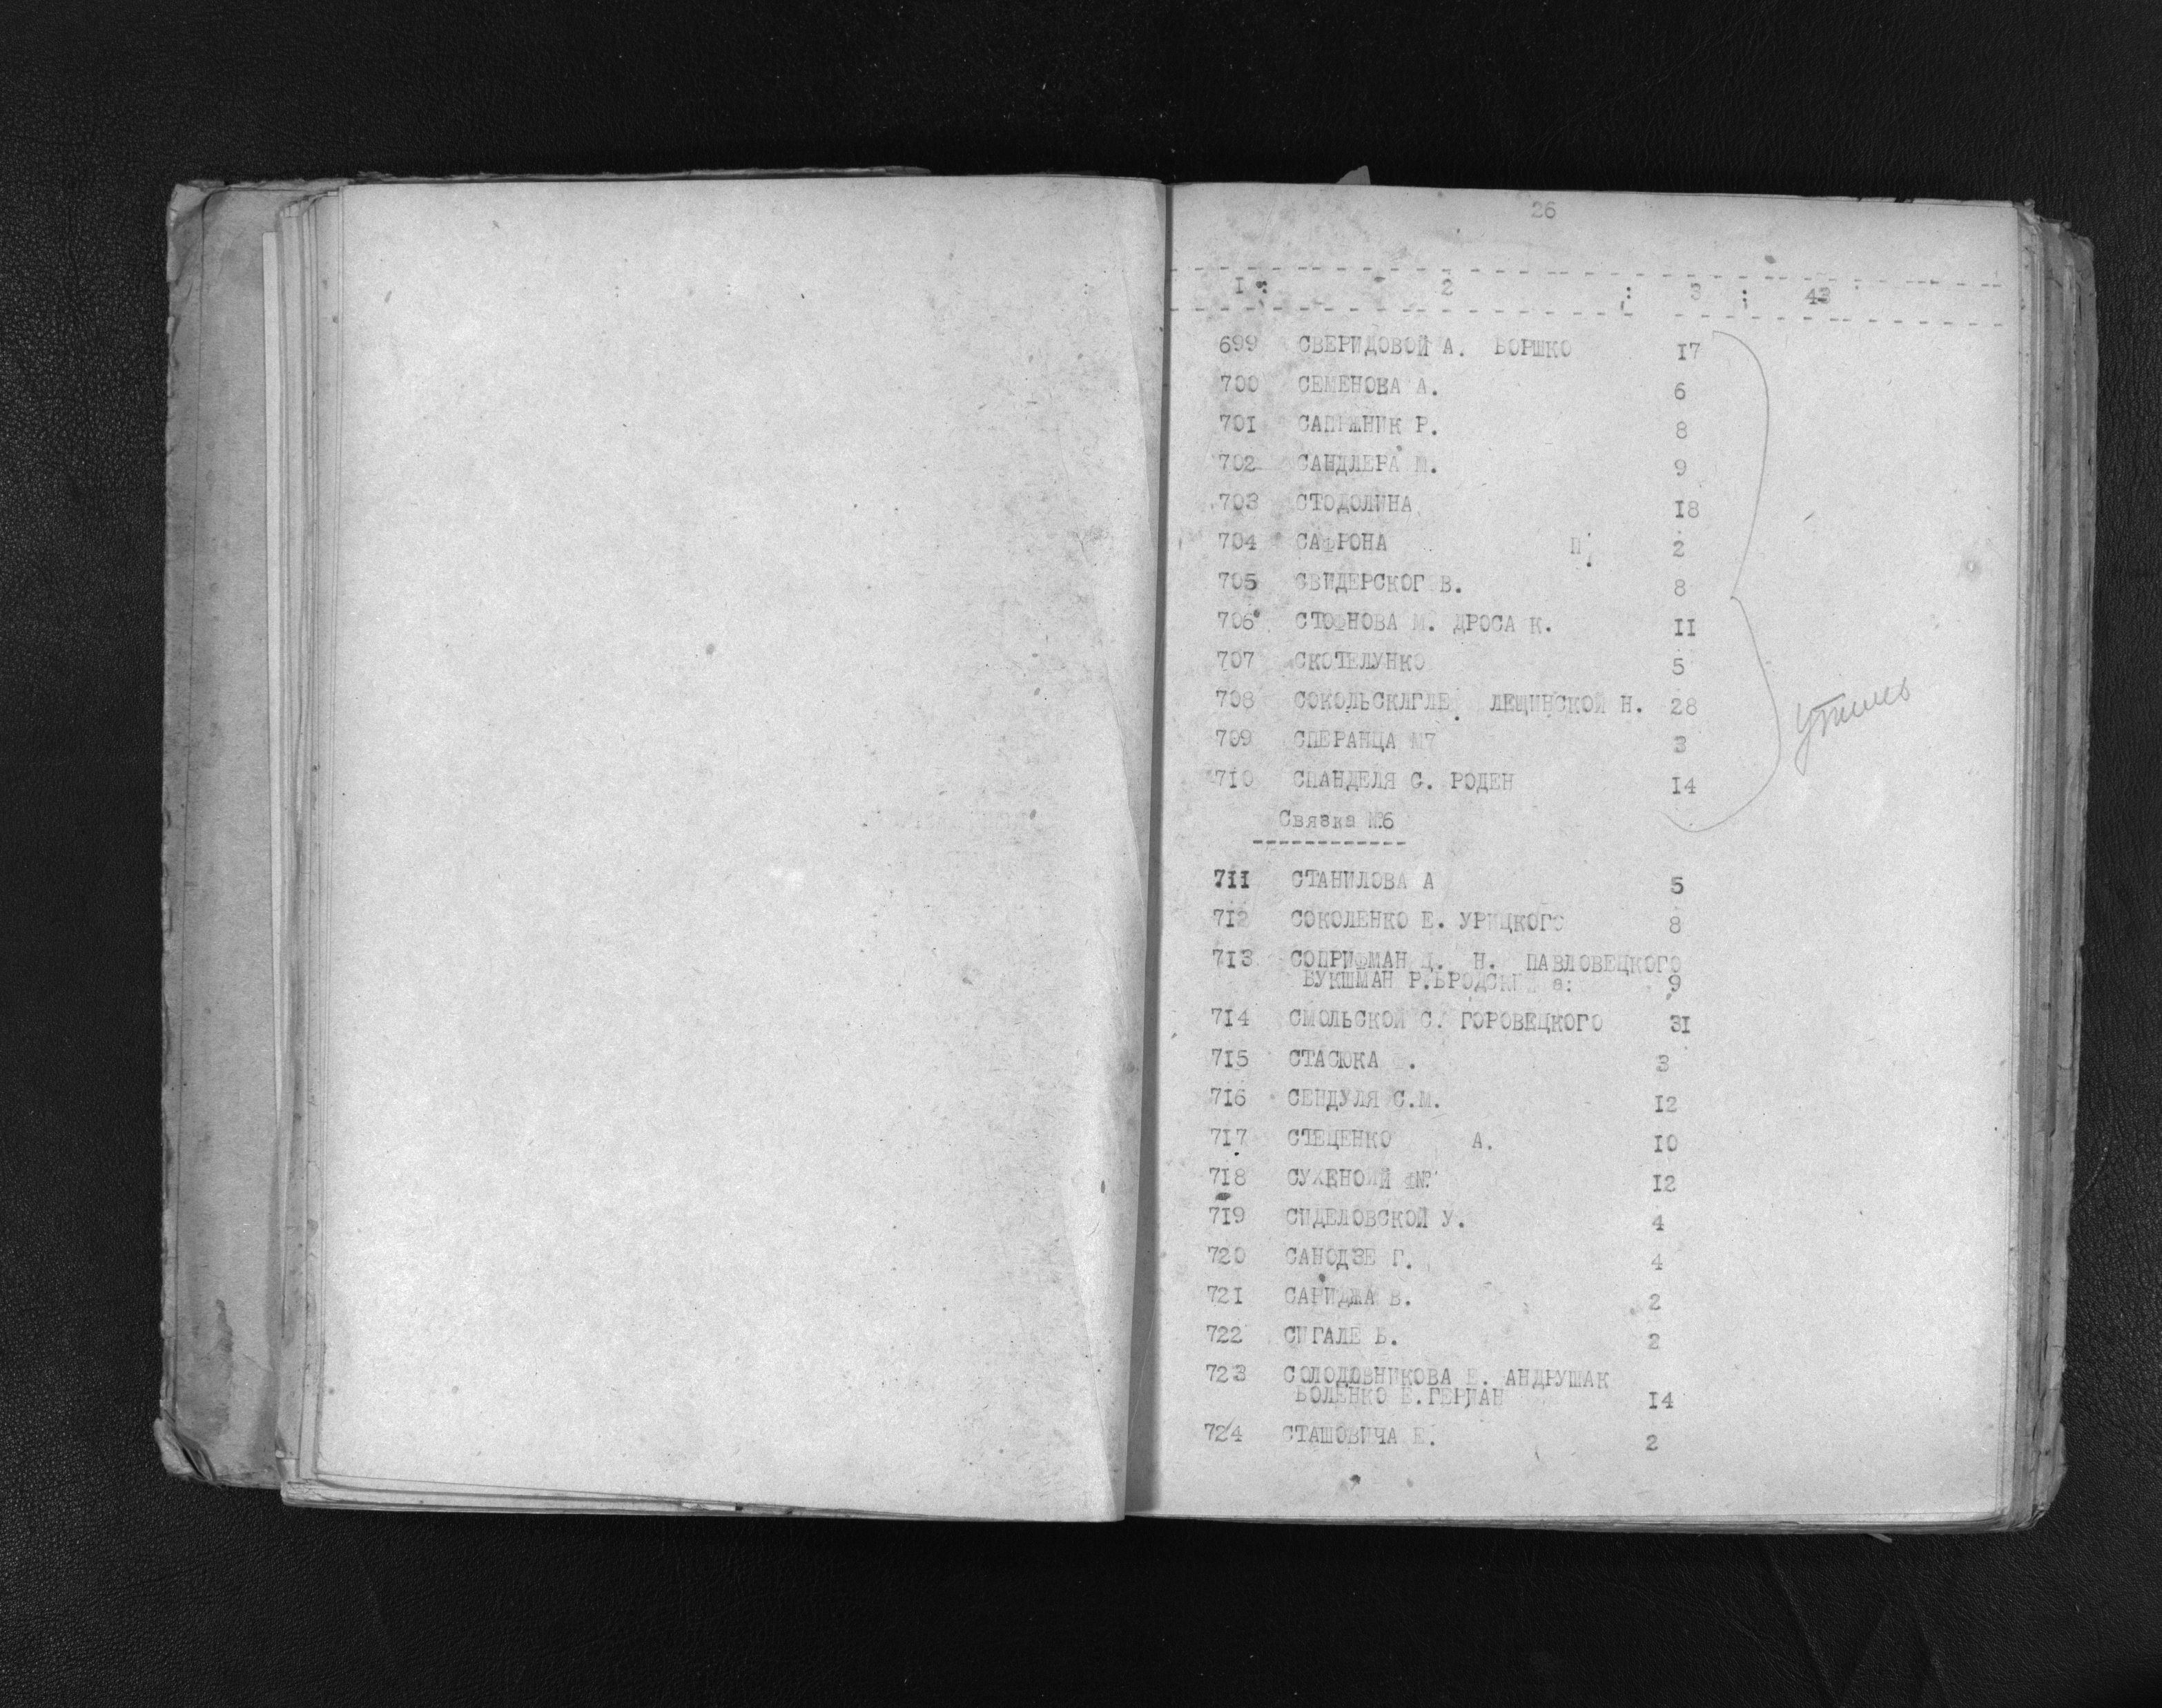 26
I : 2 : 3 : 43
699 СВЕРИДОВОЙ А. БОРШКО 17
700 СЕМЕНОВА А. 6
701 Р. 8
702 САНДЛЕРА М. 9
703 СТОДОЛИНА 18
704 САФРОНА П. 2
705 СВИДЕРСКОГ В. 8
706 СТОФНОВА М. ДРОСА К. II
707 СКОТЕЛУНКО 5
708 ЛЕЩИНСКОЙ Н. 28
709 СПЕРАНЦА М7 3
710 СПАНДЕЛЯ С. РОДЕН I4
Связка №6
7II СТАНИЛОВА А 5
7I2 СОКОЛЕНКО Е. УРИЦКОГО 8
7I3 СОПРИФМАН Д. Н. ПАВЛОВЕЦКОГО
БУКШМАН Р. 9
7I4 СМОЛЬСКОЙ С. ГОРОВЕЦКОГО 3I
7I5 СТАСЮКА . 3
7I6 СЕНДУЛЯ С.М. I2
7I7 СТЕЦЕНКО А. I0
7I8 I2
7I9 СИДЕЛОВСКОЙ У. 4
720 САНОДЗЕ Г. 4
72I САРИДЖА В. 2
722 СИГАЛЕ Б. 2
723 СОЛОДОВНИКОВА Е. АНДРУШАК
БОЛЕНКО Е. I4
724 СТАШОВИЧА Е. 2
утиль